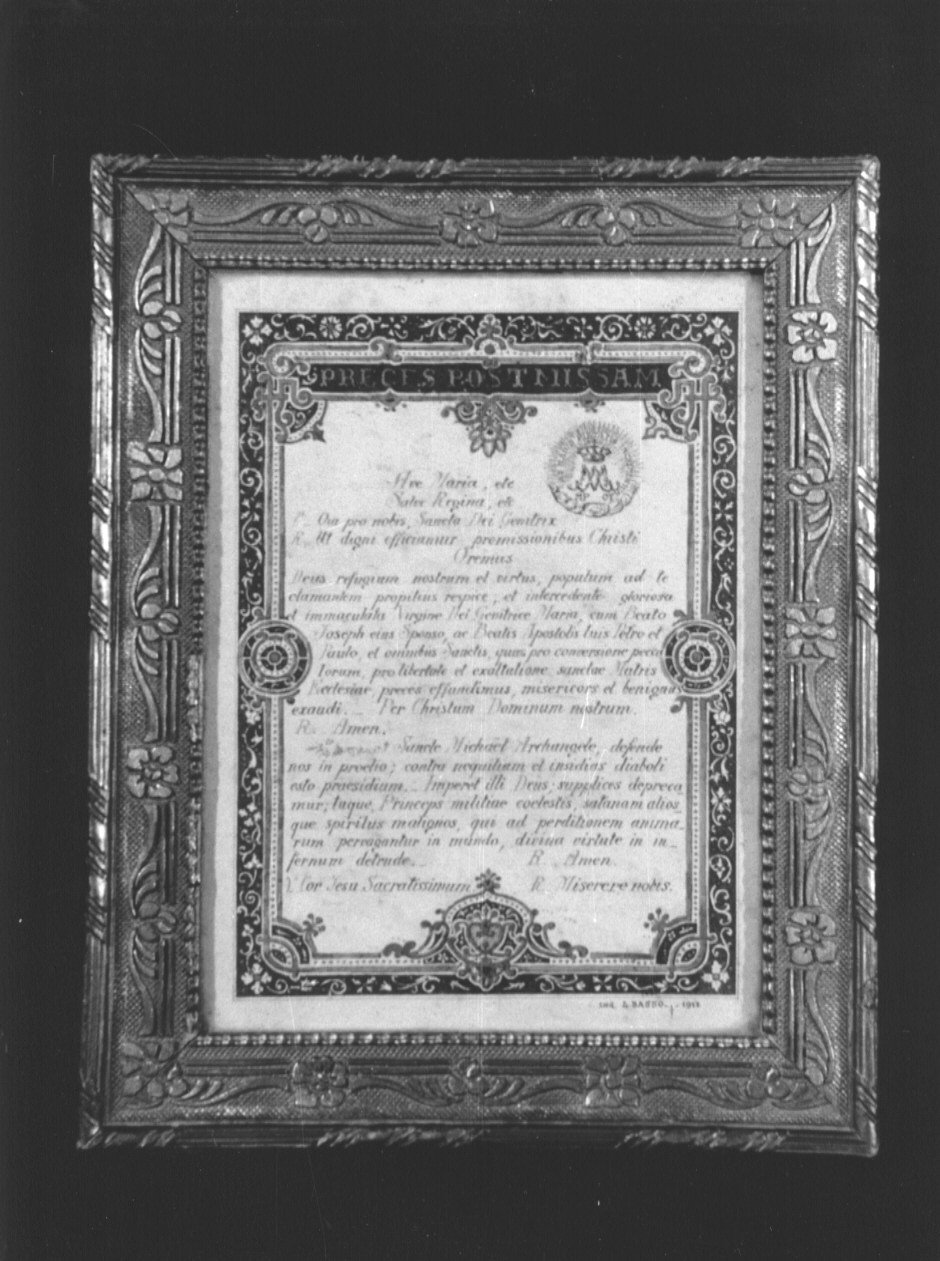 PRECES POST MISSAM
Ave Maria, etc
Salve Regina, etc
Ora pro nobis, Sancta Dei Genitrix
R. Ut digni efficiamur promissionibus Christi
Oremus
Deus refugium nostrum et virtus, populum ad te
clamantem propitius respice, et intercedente gloriosa
et immaculata Virgine Dei Genitrice Maria, cum Beato
Joseph eius Sponso, ac Beatis Apostolis tuis Petro et
Paulo, et omnibus Sanctis, quas pro conversione pecca
torum, pro libertate et exaltatione sanctae Matris
Ecclesiae preces effundimus, misericors et benignus
exaudi. _ Per Christum Dominum nostrum.
R. Amen.
Sancte Michaël Archangele, defende
nos in proelio; contra nequitiam et insidias diaboli
esto praesidium. _ Imperet illi Deus; supplices depreca
mur; tuque, Princeps militiae coelestis, satanam alios_
que spiritus malignos, qui ad perditionem anima_
rum pervagantur in mundo, divina virtute in in_
fernum detrude. _ R. Amen.
V. Cor Jesu Sacratissimum R. Miserere nobis.
S. BASSO. 1912